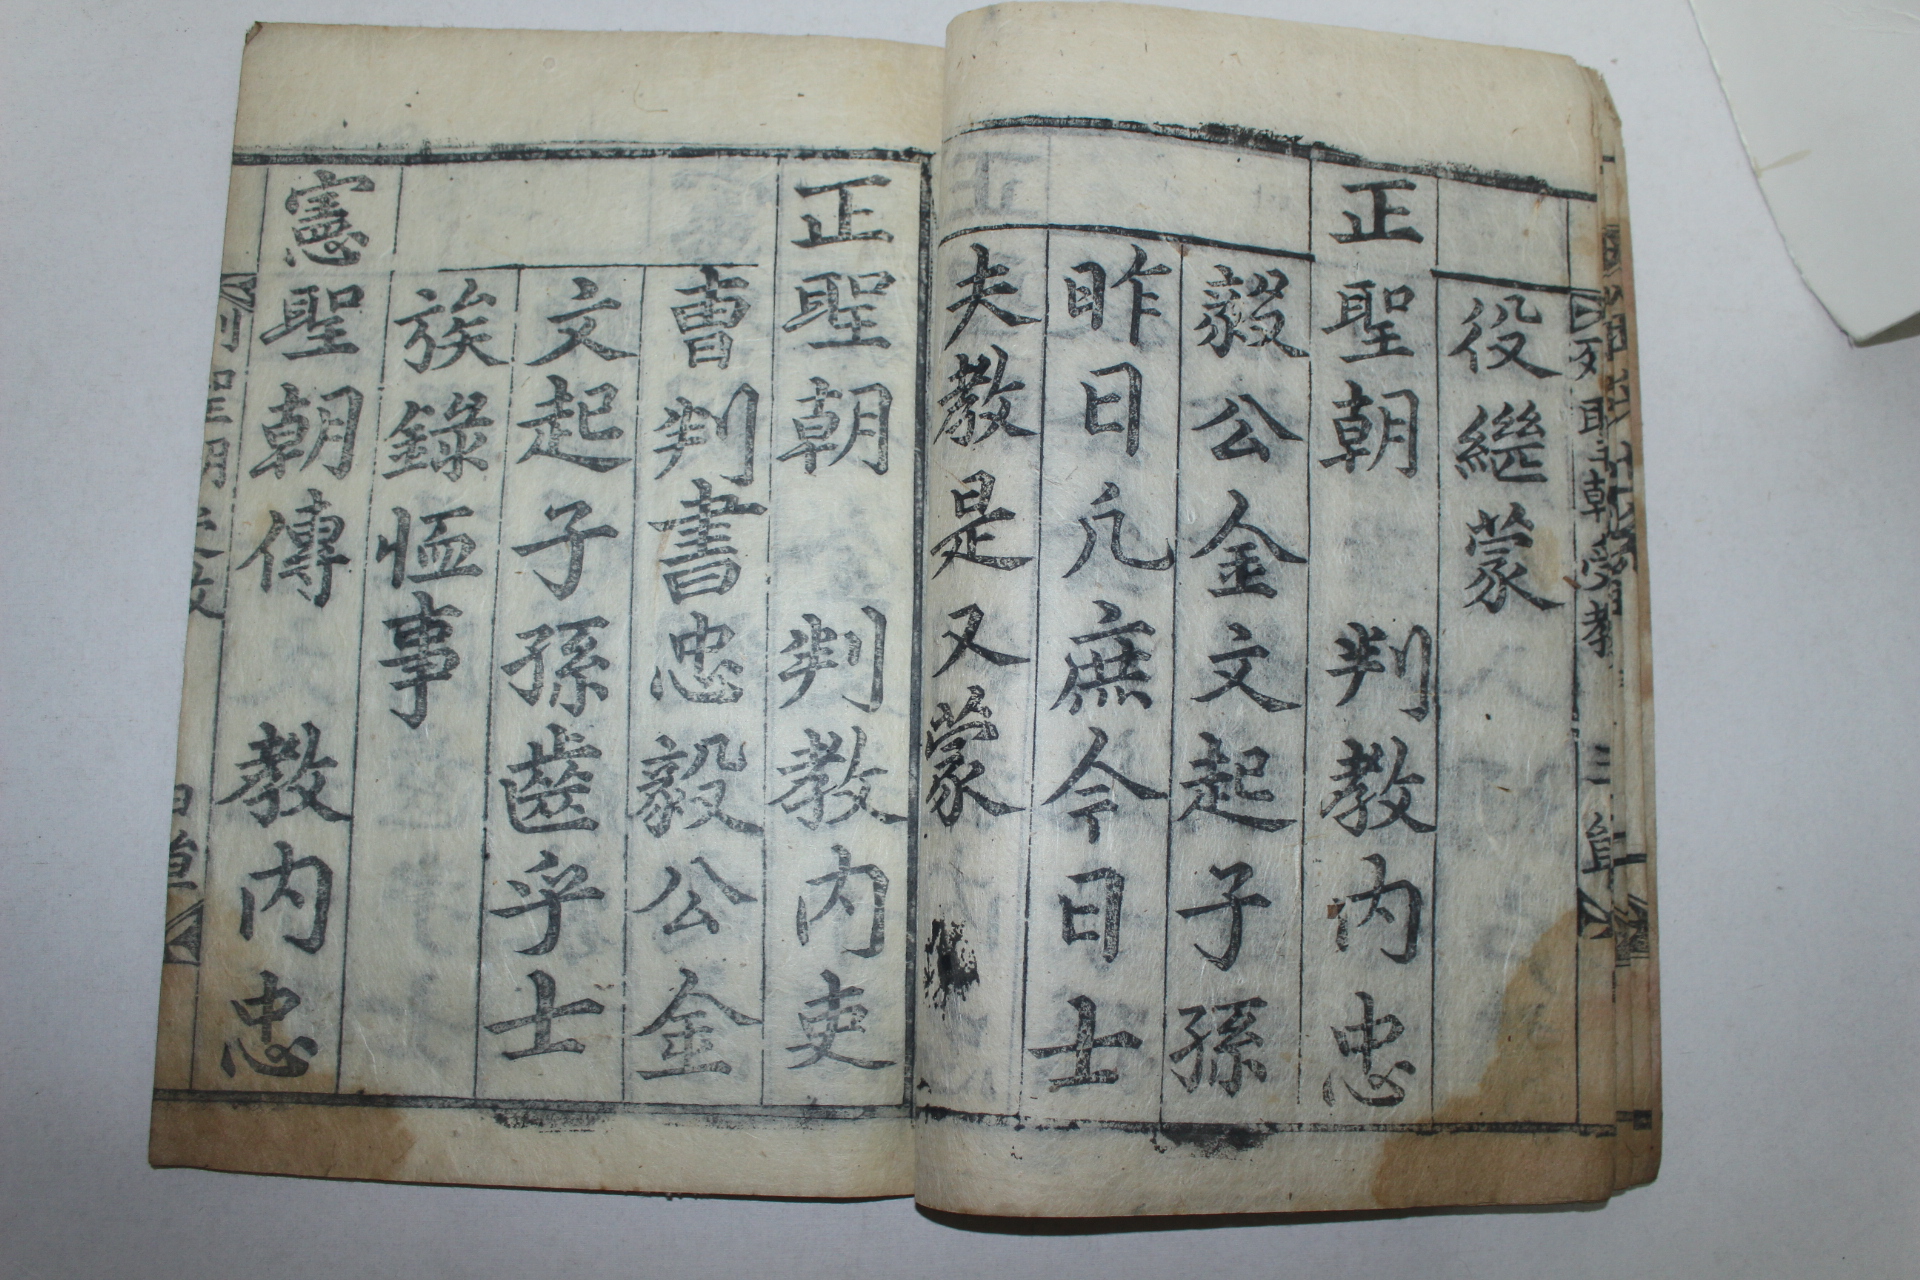 役繼蒙
正聖朝 判教內忠
毅公金文起子孫
昨日凡庶今日士
夫教是又蒙
正聖朝 判教內吏
曺判書忠毅公金
文起子孫齒乎士
族錄恤事
憲聖朝傳 教內忠
列聖朝受教 三